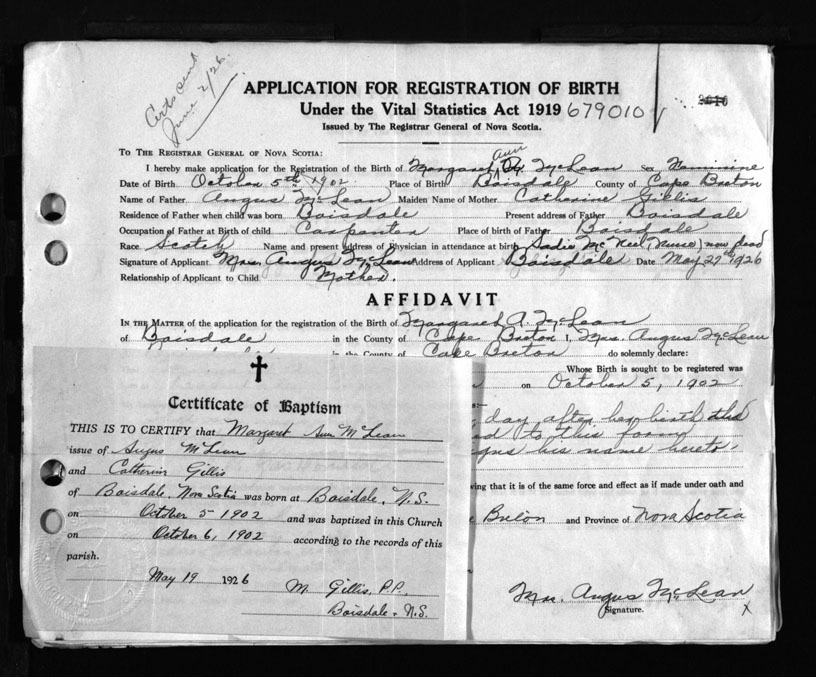 Certs sent
June 2/26.
APPLICATION FOR REGISTRATION OF BIRTH
Under the Vital Statistics Act 1919 679010
Issued by The Registrar General of Nova Scotia.
TO THE REGISTRAR GENERAL OF NOVA SCOTIA:
I hereby make application for the Registration of the Birth of Margaret Ann McLean Sex Feminine
Date of Birth October 5th 1902 Place of Birth Boisdale County of Cape Breton
Name of Father Angus McLean Maiden Name of Mother Catherine Gillis
Residence of Father when child was born Boisdale Present address of Father Boisdale
Occupation of Father at Birth of child Carpenter Place of birth of Father Boisdale
Race Scotch Name and present address of Physician in attendance at birth Sadie McNeil (Nurse) now dead
Signature of Applicant Mrs. Angus McLean Address of Applicant Boisdale Date May 27th 1926
Relationship of Applicant to Child Mother.
AFFIDAVIT
IN THE MATTER of the application for the registration of the Birth of Margaret A. McLean
of Boisdale in the County of Cape Breton I, Mrs. Angus McLean
in the County of Cape Breton do solemnly declare:
Whose Birth is sought to be registered was
on October 5, 1902
day after her birth
to this form
his name hereto
ving that it is of the same force and effect as if made under oath and
Breton and Province of Nova Scotia
Mrs. Angus McLean
Signature. X
Certificate of Baptism
THIS IS TO CERTIFY that Margaret Ann McLean
issue of Angus McLean
and Catherine Gillis
of Boisdale, Nova Scotia was born at Boisdale, N.S.
on October 5 1902 and was baptized in this Church
on October 6, 1902 according to the records of this
parish.
May 19 1926 M. Gillis, P.P.
Boisdale, N.S.